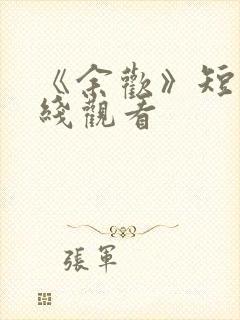 《余歡》短
綫觀看
張軍